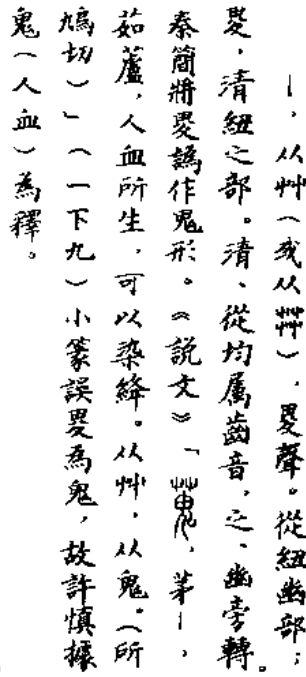 ｜，从艸（或从茻），畟聲。從紐幽部；
畟，清紐之部。清、從均屬齒音，之、幽旁轉。
秦簡將畟譌作鬼形。《説文》「蒐，茅｜，
茹藘，人血所生，可以染絳。从艸，从鬼。（所
鳩切）」（一下九）小篆誤畟為鬼，故許慎據
鬼（人血）為釋。